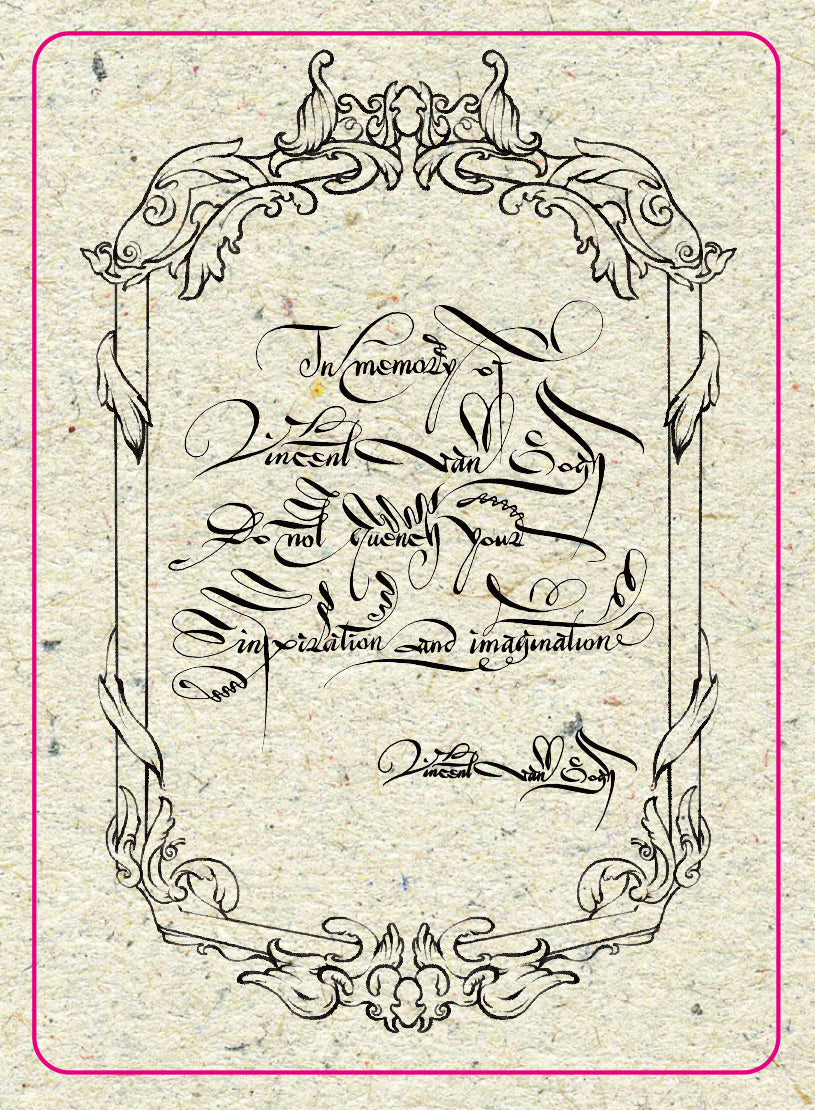 In memory of
Vincent van Gogh
Do not quench your
inspiration and imagination
Vincent van Gogh